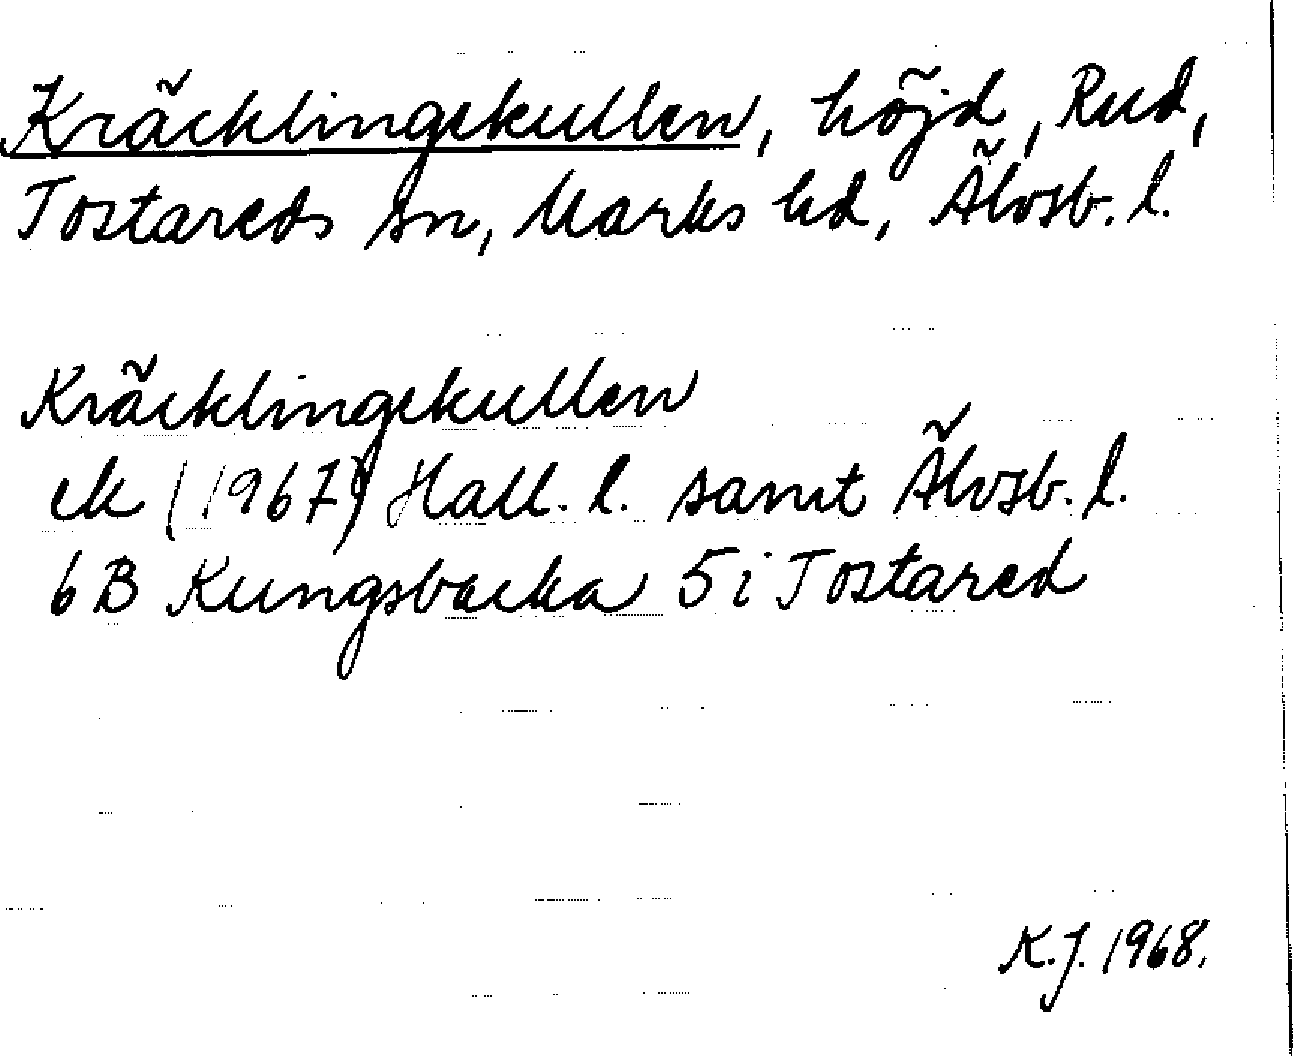 Kräcklingekullen, höjd, Rud,
Tostareds sn, Marks hd, Älvsb. l.
Kräcklingekullen
ek (1967) Hall. l. samt Älvsb. l.
6B Kungsbacka 5i Tostared
K.J. 1968.